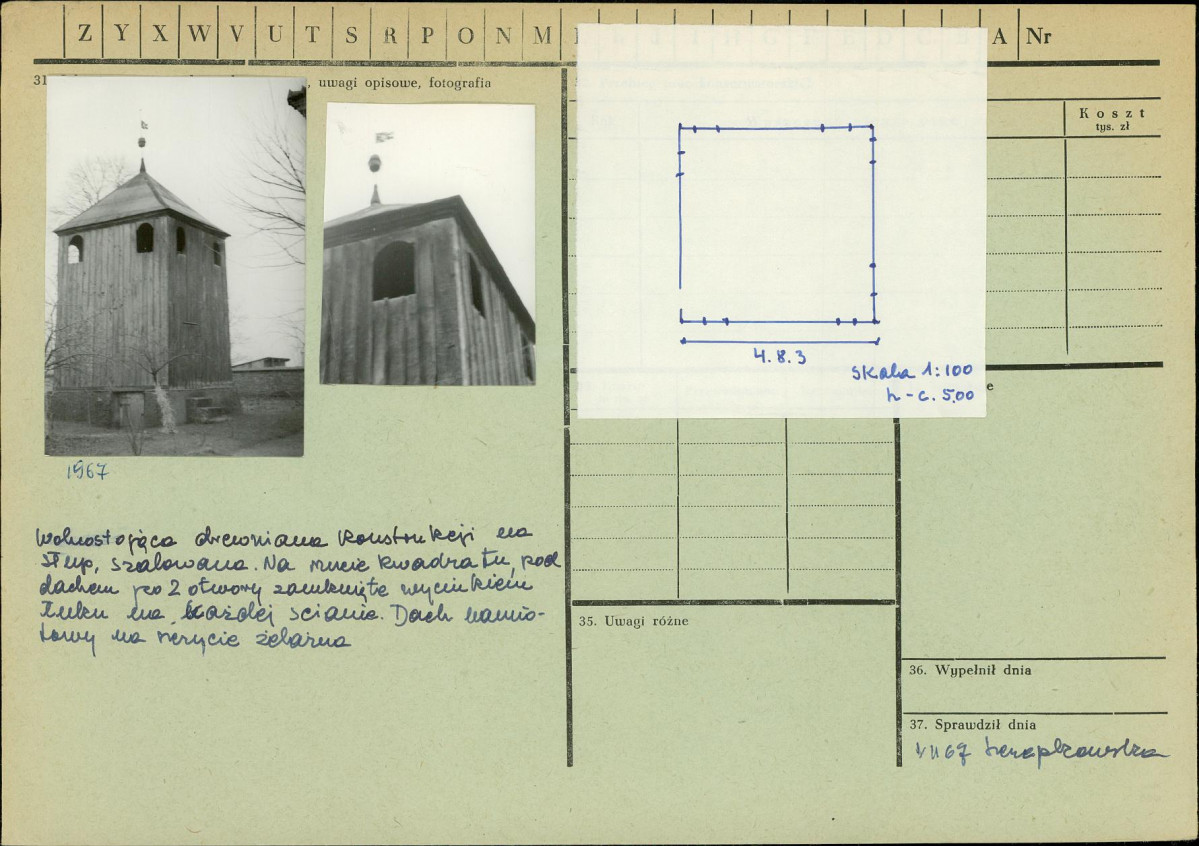 Z Y X W V U T S R P O N M A Nr
31
, uwagi opisowe, fotografia
1967
Wolnostojąca drewniana konstrukcji na
słup, szalowana. Na rzucie kwadratu, pod
dachem po 2 otwory zamknięte wycinkiem
łuku na każdej ścianie. Dach namio-
towy na
4.8.3
skala 1:100
h - c. 5.00
Koszt
tys. zł
e
35. Uwagi różne
36. Wypełnił dnia
37. Sprawdził dnia